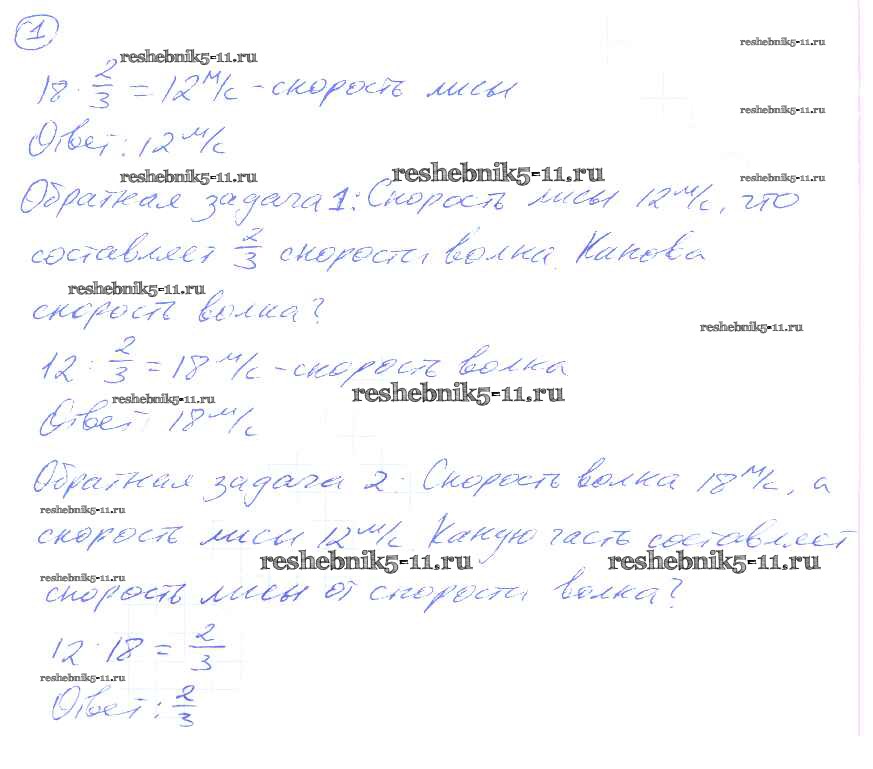 1
reshebnik5-11.ru
reshebnik5-11.ru
18 · 2/3 = 12 м/с - скорость лисы
reshebnik5-11.ru
Ответ: 12 м/с
reshebnik5-11.ru reshebnik5-11.ru reshebnik5-11.ru
Обратная задача 1: Скорость лисы 12 м/с, что
составляет 2/3 скорости волка. Какова
reshebnik5-11.ru
скорость волка?
reshebnik5-11.ru
12 : 2/3 = 18 м/с - скорость волка
reshebnik5-11.ru reshebnik5-11.ru
Ответ: 18 м/с
Обратная задача 2: Скорость волка 18 м/с, а
reshebnik5-11.ru
скорость лисы 12 м/с. Какую часть составляет
reshebnik5-11.ru reshebnik5-11.ru
reshebnik5-11.ru
скорость лисы от скорости волка?
12 : 18 = 2/3
reshebnik5-11.ru
Ответ: 2/3